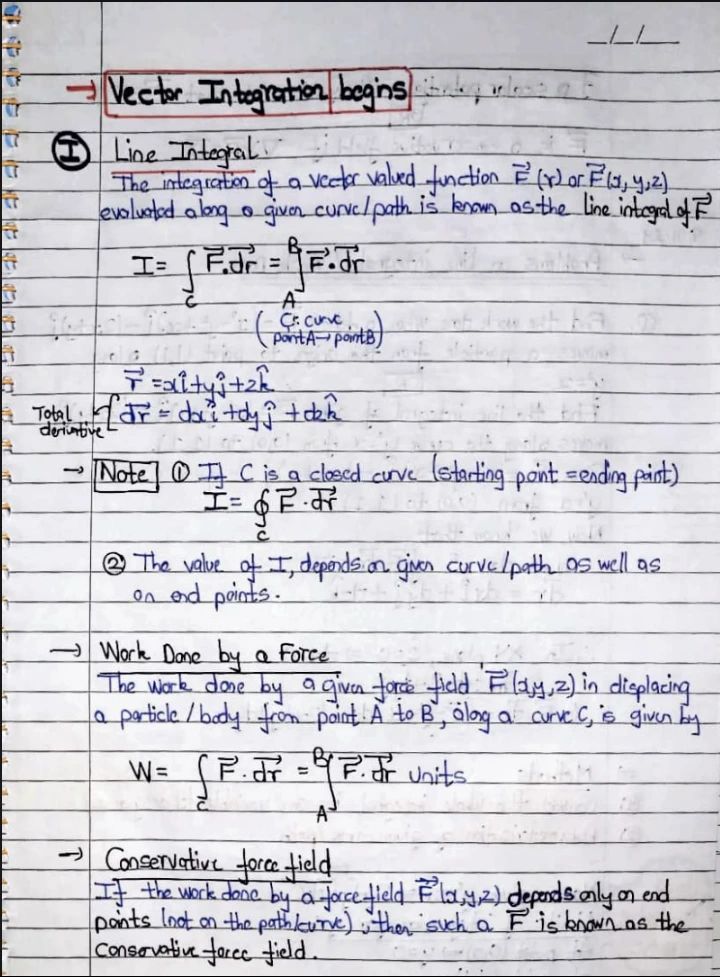 _/_/_
→ Vector Integration begins
I Line Integral
The integration of a vector valued function F⃗(r) or F⃗(x, y, z)
evaluated along a given curve/path is known as the line integral of F⃗
I = ∫_C F⃗.dr⃗ = ∫_A^B F⃗.dr⃗
(C: curve
point A → point B)
r⃗ = xî+yĵ+zk̂
Total derivative { dr⃗ = dxî +dyĵ +dzk̂
→ Note ① If C is a closed curve (starting point = ending point)
I = ∮_C F⃗.dr⃗
② The value of I, depends on given curve/path as well as
on end points.
→ Work Done by a Force
The work done by a given force field F⃗(x,y,z) in displacing
a particle / body from point A to B, along a curve C, is given by
W = ∫_C F⃗.dr⃗ = ∫_A^B F⃗.dr⃗ units
→ Conservative force field
If the work done by a force field F⃗(x,y,z) depends only on end
points (not on the path/curve), then such a F⃗ is known as the
conservative force field.